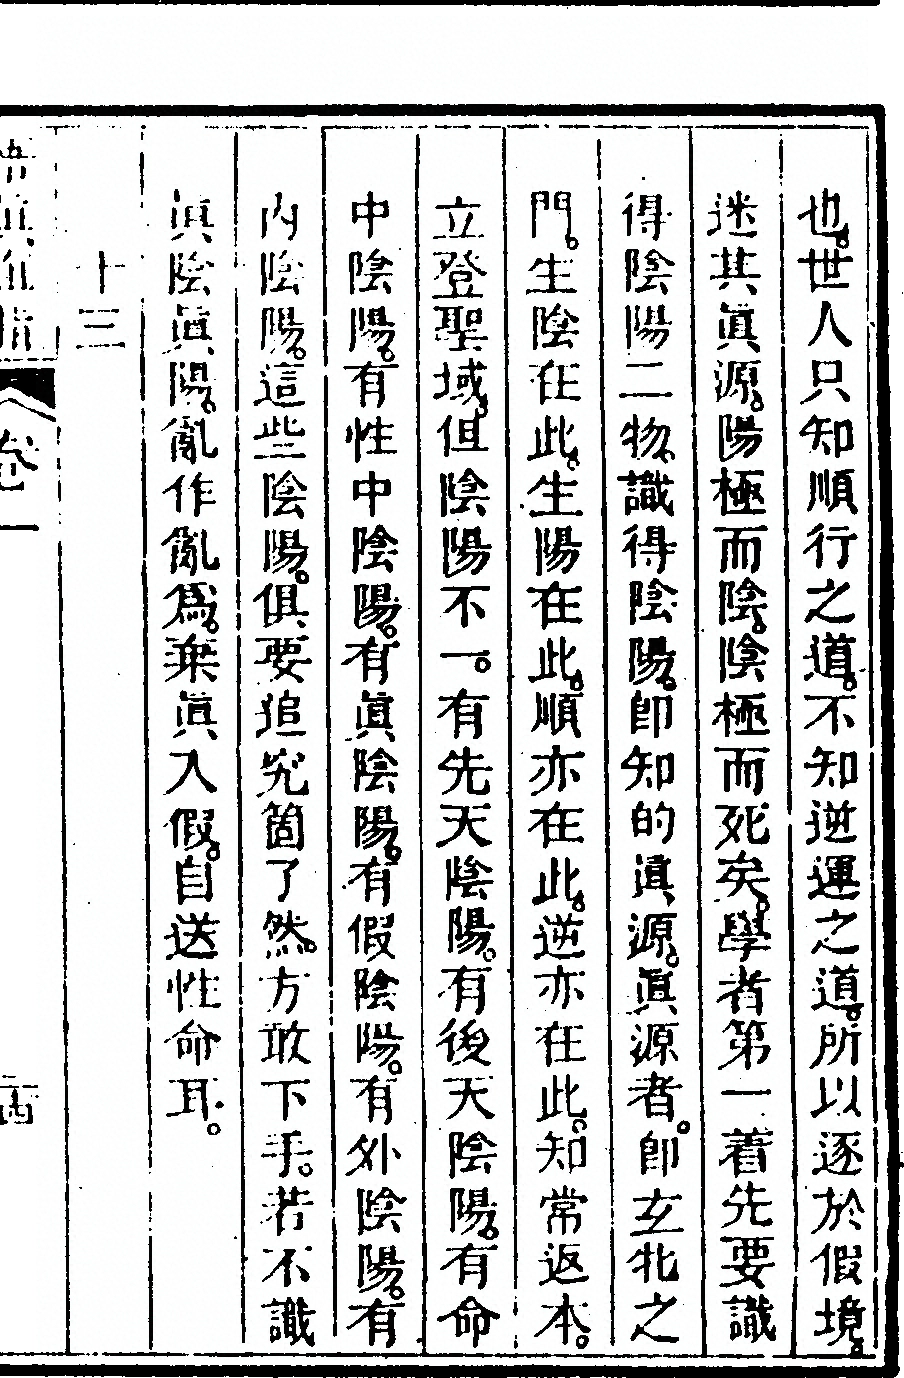 也。世人只知順行之道。不知逆運之道。所以逐於假境。
迷其眞源。陽極而陰。陰極而死矣。學者第一着先要識
得陰陽二物。識得陰陽。卽知的眞源。眞源者。卽玄牝之
門。生陰在此。生陽在此。順亦在此。逆亦在此。知常返本。
立登聖域。但陰陽不一。有先天陰陽。有後天陰陽。有命
中陰陽。有性中陰陽。有眞陰陽。有假陰陽。有外陰陽。有
內陰陽。這些陰陽。俱要追究箇了然。方敢下手。若不識
眞陰眞陽。亂作亂爲。棄眞入假。自送性命耳。
十三
卷一